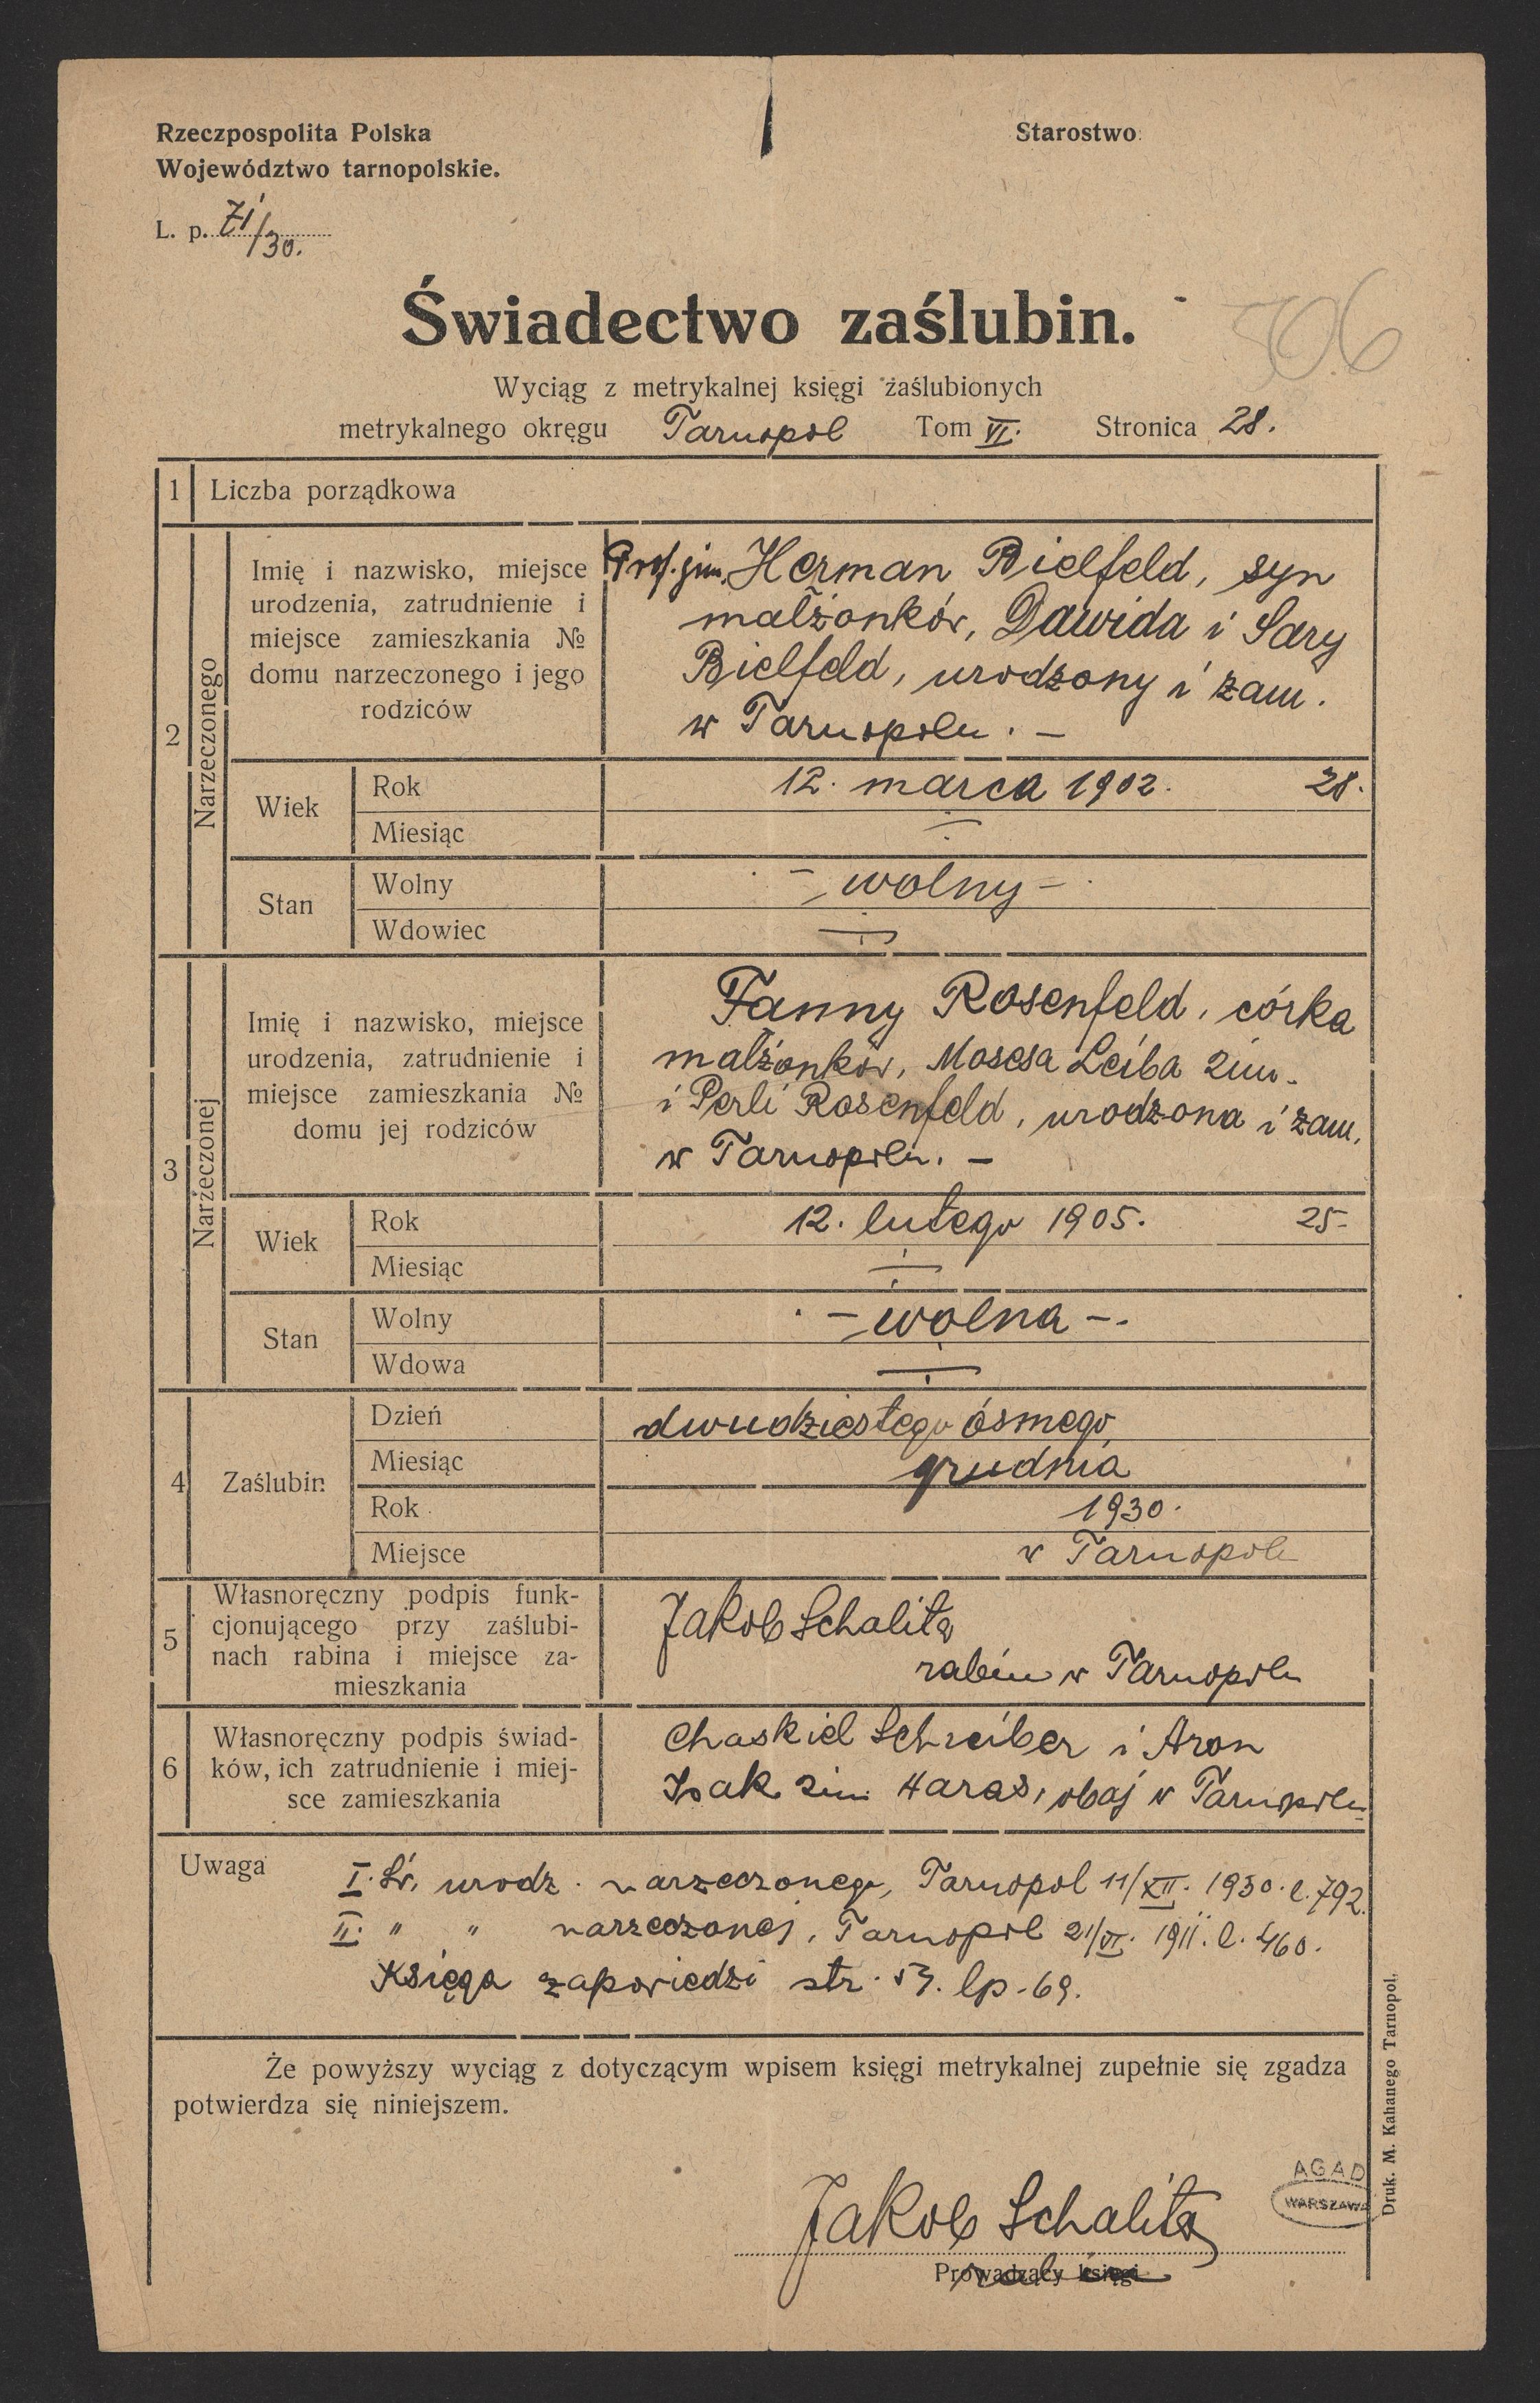 Rzeczpospolita Polska
Starostwo
Województwo tarnopolskie.
L. p. 71/30.
Świadectwo zaślubin.
306
Wyciąg z metrykalnej księgi zaślubionych
metrykalnego okręgu Tarnopol Tom VI. Stronica 28.
1 Liczba porządkowa
2 Narzeczonego
Imię i nazwisko, miejsce
urodzenia, zatrudnienie i
miejsce zamieszkania №
domu narzeczonego i jego
rodziców
Prof. gim. Herman Bielfeld, syn
małżonków, Dawida i Sary
Bielfeld, urodzony i zam.
w Tarnopolu. —
Wiek Rok 12. marca 1902. 28.
Miesiąc
Stan Wolny — wolny —
Wdowiec
3 Narzeczonej
Imię i nazwisko, miejsce
urodzenia, zatrudnienie i
miejsce zamieszkania №
domu jej rodziców
Fanny Rosenfeld, córka
małżonków, Mosesa Leiba 2im.
i Perli Rosenfeld, urodzona i zam.
w Tarnopolu. —
Wiek Rok 12. lutego 1905. 25
Miesiąc
Stan Wolny — wolna —
Wdowa
4 Zaślubin
Dzień dwudziestego ósmego
Miesiąc grudnia
Rok 1930.
Miejsce w Tarnopolu
5 Własnoręczny podpis funk-
cjonującego przy zaślubi-
nach rabina i miejsce za-
mieszkania
Jakob Schalita
rabin w Tarnopolu
6 Własnoręczny podpis świad-
ków, ich zatrudnienie i miej-
sce zamieszkania
Chaskiel Schreiber i Aron
Isak 2im. Haras, obaj w Tarnopolu
Uwaga
I. Św. urodz. narzeczonego, Tarnopol 11/XII. 1930. l. 792.
II. " " narzeczonej, Tarnopol 21/VI. 1911. l. 460.
Księga zapowiedzi str. 53. lp. 69.
Że powyższy wyciąg z dotyczącym wpisem księgi metrykalnej zupełnie się zgadza
potwierdza się niniejszem.
Jakob Schalita
Prowadzący księgi
rabin
AGAD
WARSZAWA
Druk. M. Kahanego Tarnopol.